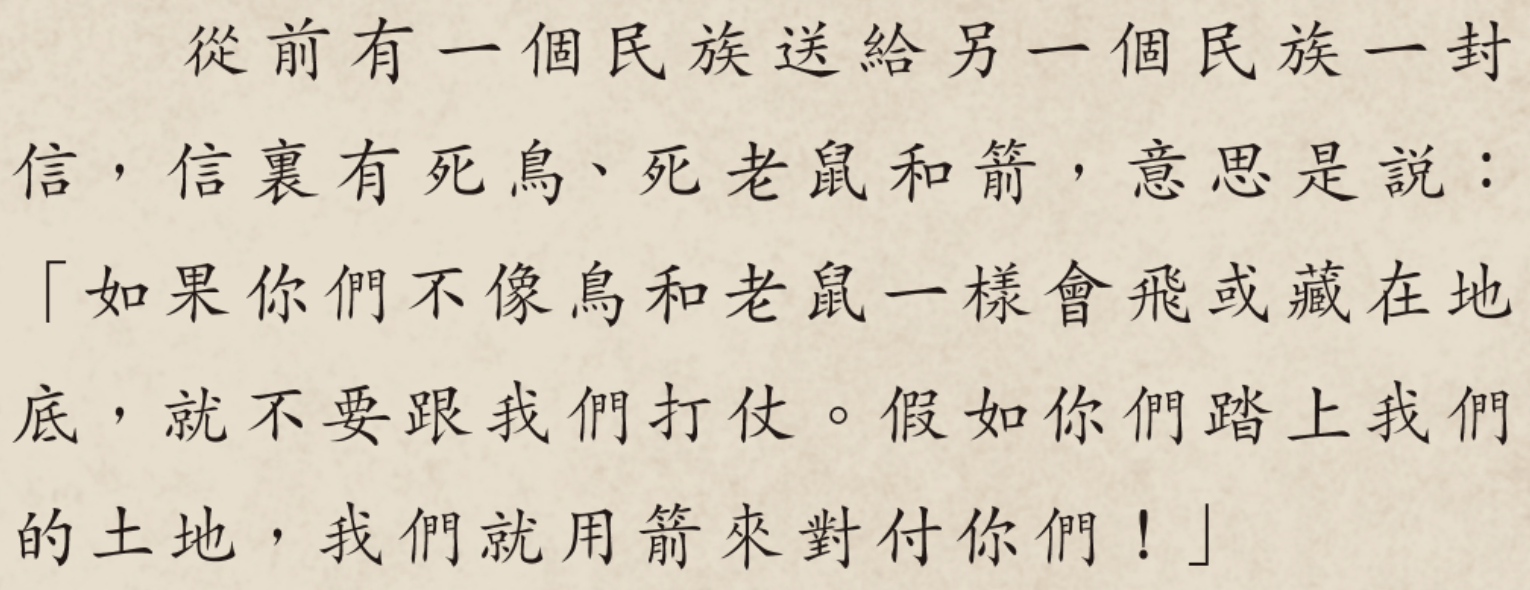 從前有一個民族送給另一個民族一封
信，信裏有死鳥、死老鼠和箭，意思是説：
「如果你們不像鳥和老鼠一樣會飛或藏在地
底，就不要跟我們打仗。假如你們踏上我們
的土地，我們就用箭來對付你們！」